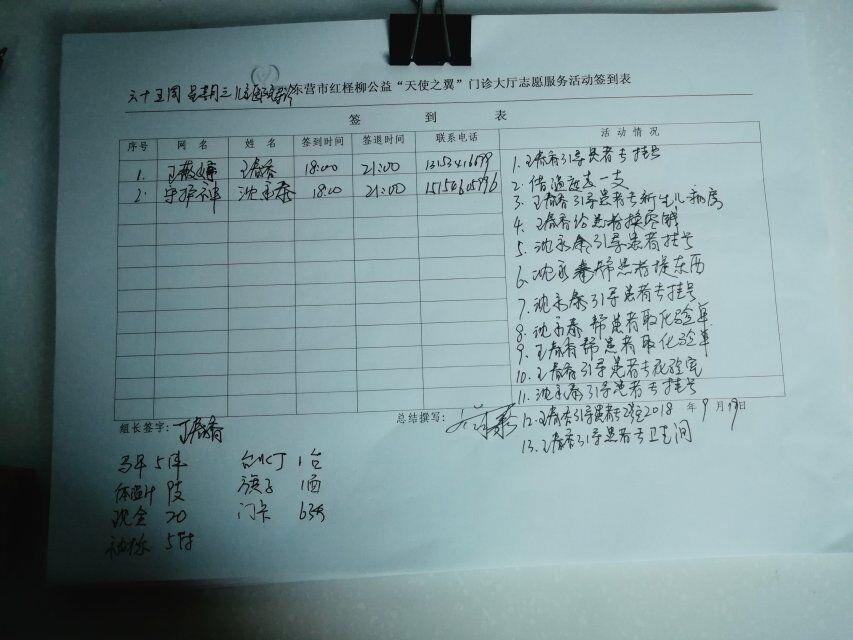 六十五周 星期三 儿 东营市红柽柳公益“天使之翼”门诊大厅志愿服务活动签到表
签 到 表
序号 网 名 姓 名 签到时间 签退时间 联系电话 活 动 情 况
1. 王春香 18:00 21:00
2. 守护神 沈永泰 18:00 21:00
1. 王春香引导患者去挂号
2. 借温度表一支
3. 王春香引导患者去新生儿病房
4. 王春香给患者换零钱
5. 沈永泰引导患者挂号
6. 沈永泰帮患者提东西
7. 沈永泰引导患者去挂号
8. 沈永泰帮患者取化验单
9. 王春香帮患者取化验单
10. 王春香引导患者去化验室
11. 沈永泰引导患者去挂号
组长签字: 王春香 总结撰写: 2018 年 9 月 19 日
12. 王春香引导患者去
13. 王春香引导患者去卫生间
马甲 5件 台灯 1台
体温计 9支 旗子 1面
现金 20 门卡 6张